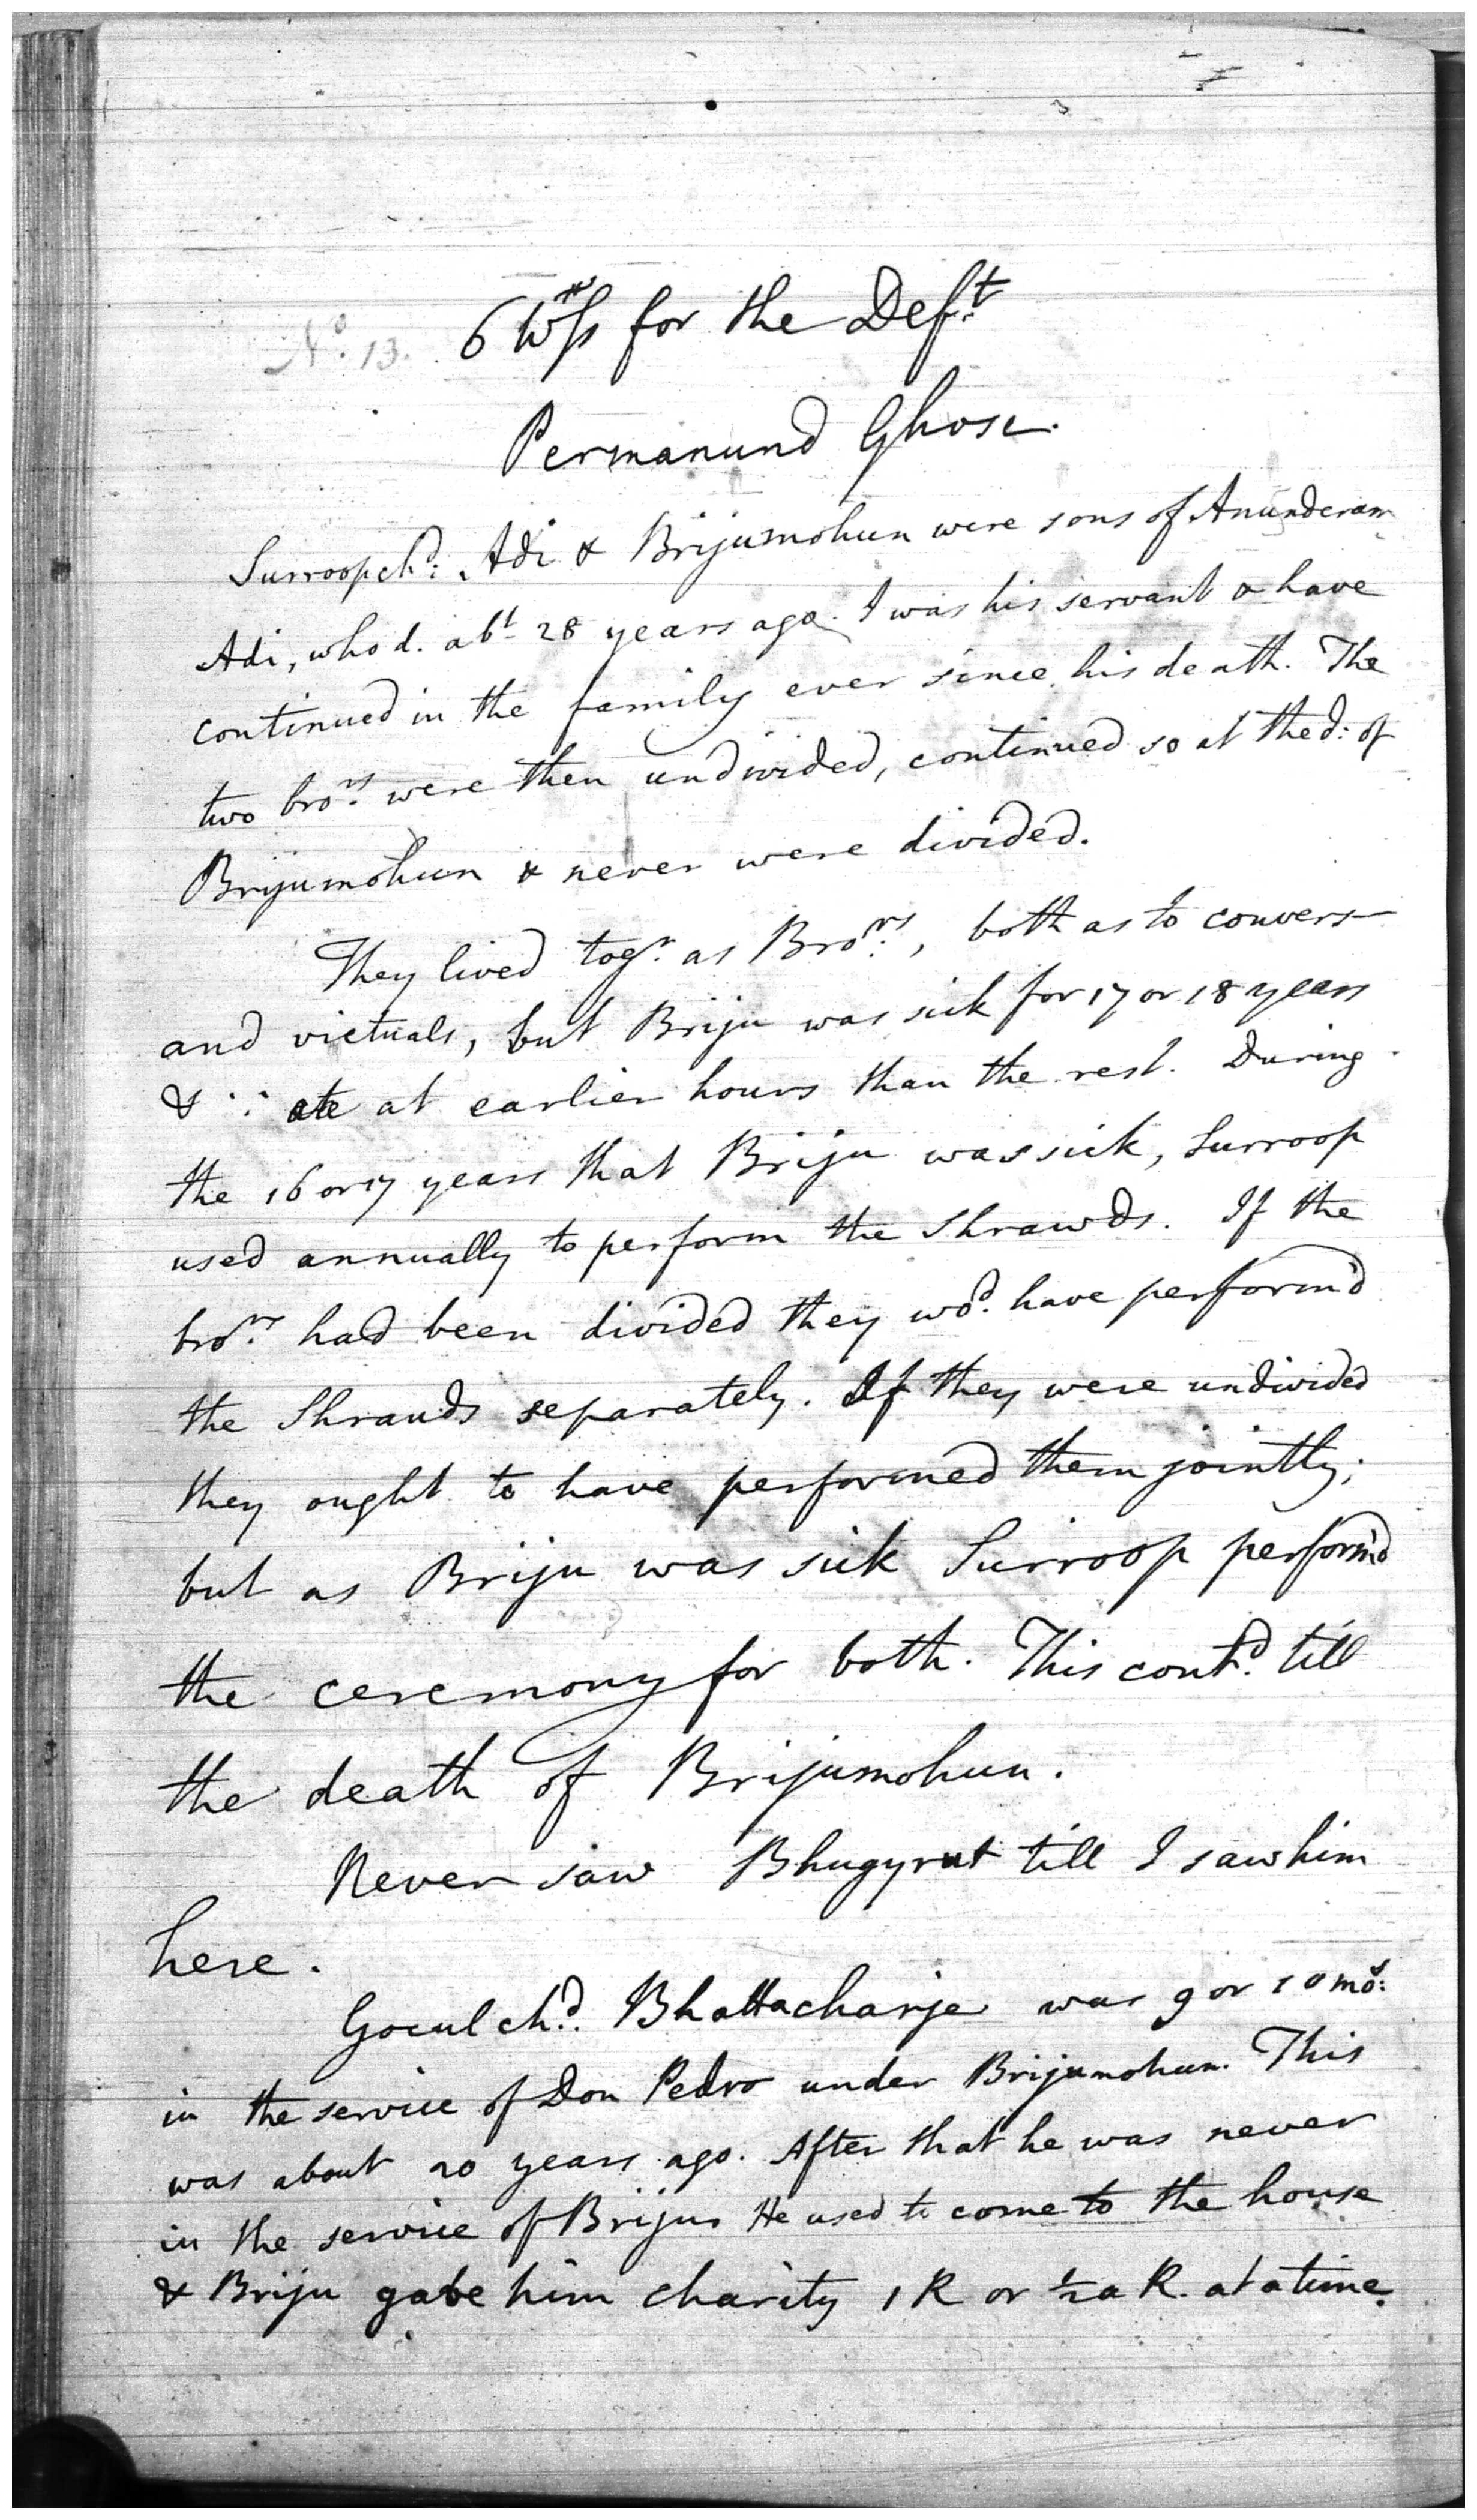 No. 13. 6 Wss for the Deft.
Permanund Ghose.
Surroopchd: Adi & Brijumohun were sons of Anunderam
Adi, who d. abt 28 years ago. I was his servant & have
continued in the family ever since his death. The
two brors. were then undivided, continued so at the d: of
Brijumohun & never were divided.
They lived togr. as Brors., both as to convers
and victuals, but Briju was sick for 17 or 18 years
& ∵ ate at earlier hours than the rest. During
the 16 or 17 years that Briju was sick, Surroop
used annually to perform the Shrawds. If the
brors. had been divided they wod. have perform'd
the Shrauds separately. If they were undivided
they ought to have performed them jointly;
but as Briju was sick Surroop perform'd
the ceremony for both. This contd. till
the death of Brijumohun.
Never saw Bhugyrut till I saw him
here.
Gocul chd. Bhattacharje was 9 or 10 mos:
in the service of Don Pedro under Brijumohun. This
was about 20 years ago. After that he was never
in the service of Briju. He used to come to the house
& Briju gave him charity 1 R or ½ a R. at a time.